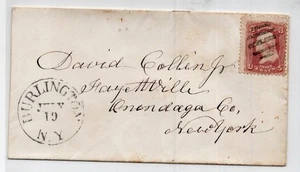 David Collin Jr
Fayettville
Onondaga Co,
New York
BURLINGTON
JULY
19
N.Y.